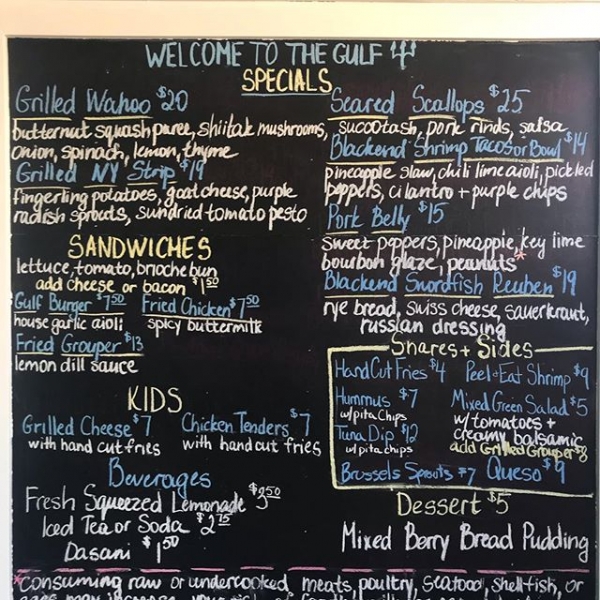 WELCOME TO THE GULF
SPECIALS
Grilled Wahoo $20
butternut squash puree, shiitak mushrooms,
onion, spinach, lemon, thyme
Grilled NY Strip $19
fingerling potatoes, goat cheese, purple
radish sprouts, sundried tomato pesto
Seared Scallops $25
succotash, pork rinds, salsa
Blackend Shrimp Tacos or Bowl $14
pineapple slaw, chili lime aioli, pickled
peppers, cilantro + purple chips
Pork Belly $15
sweet peppers, pineapple, key lime
bourbon glaze, peanuts*
Blackend Swordfish Reuben $19
rye bread, swiss cheese, sauerkraut,
russian dressing
SANDWICHES
lettuce, tomato, brioche bun
add cheese or bacon $1.50
Gulf Burger $7.50 Fried Chicken $7.50
house garlic aioli spicy buttermilk
Fried Grouper $13
lemon dill sauce
KIDS
Grilled Cheese $7 Chicken Tenders $7
with hand cut fries with hand cut fries
Beverages
Fresh Squeezed Lemonade $3.50
Iced Tea or Soda $2.75
Dasani $1.50
Shares + Sides
Hand Cut Fries $4 Peel + Eat Shrimp $9
Hummus $7
w/pita chips
Tuna Dip $12
w/pita chips
Brussels Sprouts $7
Mixed Green Salad $5
w/ tomatoes +
creamy balsamic
add Grilled Grouper
Queso $9
Dessert $5
Mixed Berry Bread Pudding
*Consuming raw or undercooked meats, poultry, seafood, shellfish, or